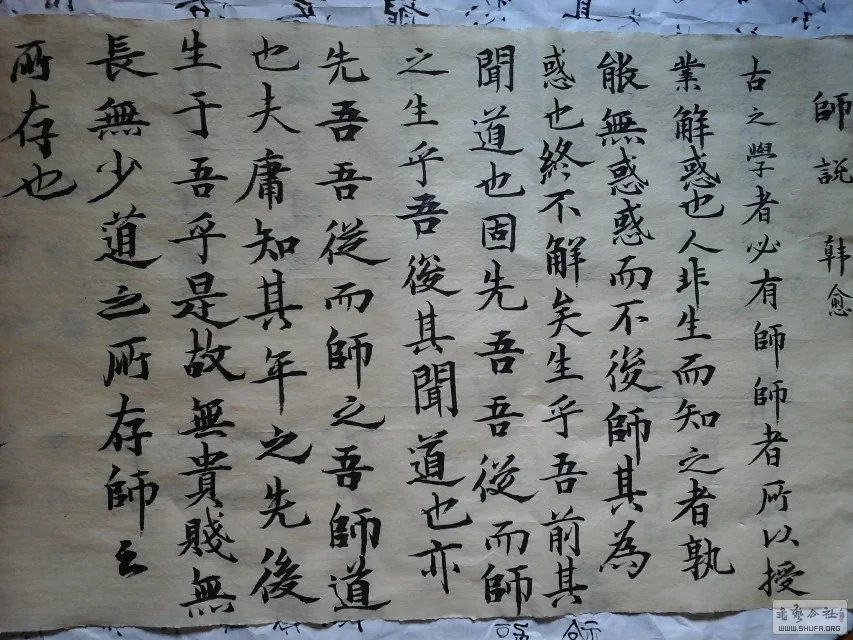 師說 韩愈
古之學者必有師師者所以授
業解惑也人非生而知之者孰
能無惑惑而不後師其為
惑也終不解矣生乎吾前其
聞道也固先吾吾從而師
之生乎吾後其聞道也亦
先吾吾從而師之吾師道
也夫庸知其年之先後
生于吾乎是故無貴賤無
長無少道之所存師之
所存也
WWW.SHUFA.ORG